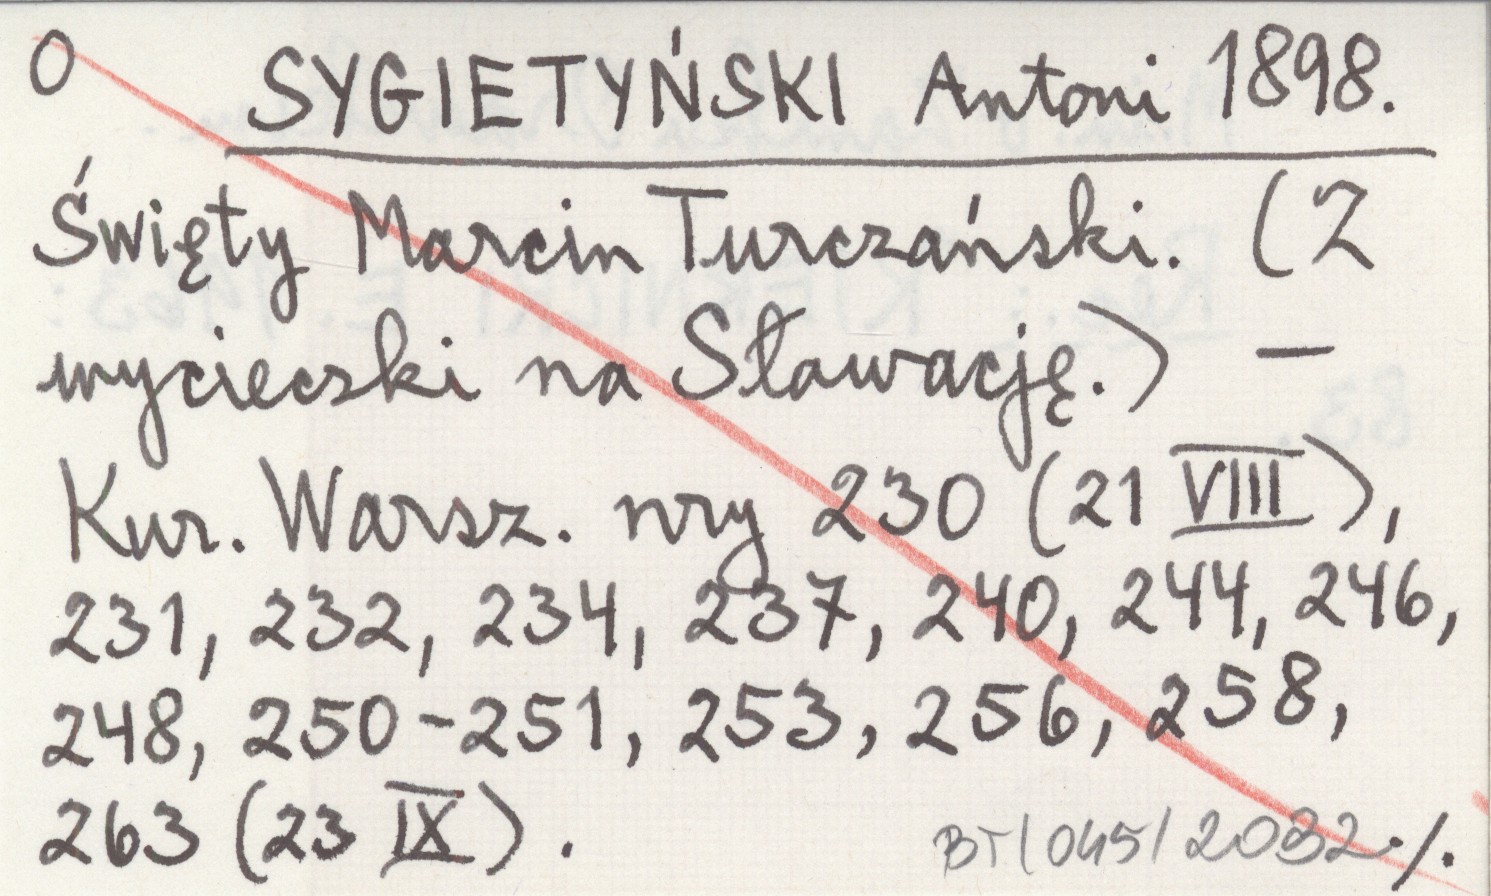 O
SYGIETYŃSKI Antoni 1898.
Święty Marcin Turczański. (Z
wycieczki na Sławację.) —
Kur. Warsz. nry 230 (21 VIII),
231, 232, 234, 237, 240, 244, 246,
248, 250-251, 253, 256, 258,
263 (23 IX).
BT/045/2032 ./.